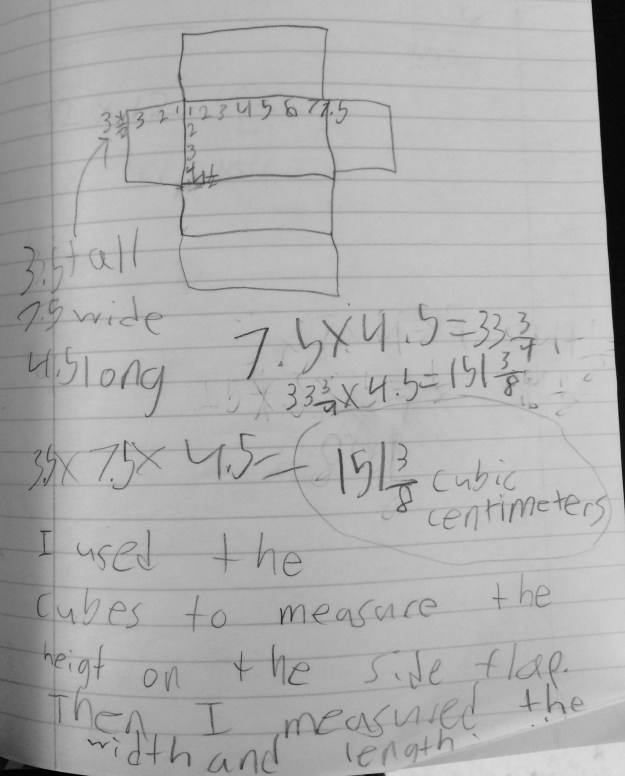 3 1/2 3 2 1 1 2 3 4 5 6 7 7.5
2
3
4 1/2
3.5 tall
7.5 wide
4.5 long
7.5 × 4.5 = 33 3/4
33 3/4 × 4.5 = 151 3/8
3.5 × 7.5 × 4.5 = 151 3/8 cubic
centimeters
I used the
cubes to measure the
heigt on the side flap.
Then I measured the
width and length.